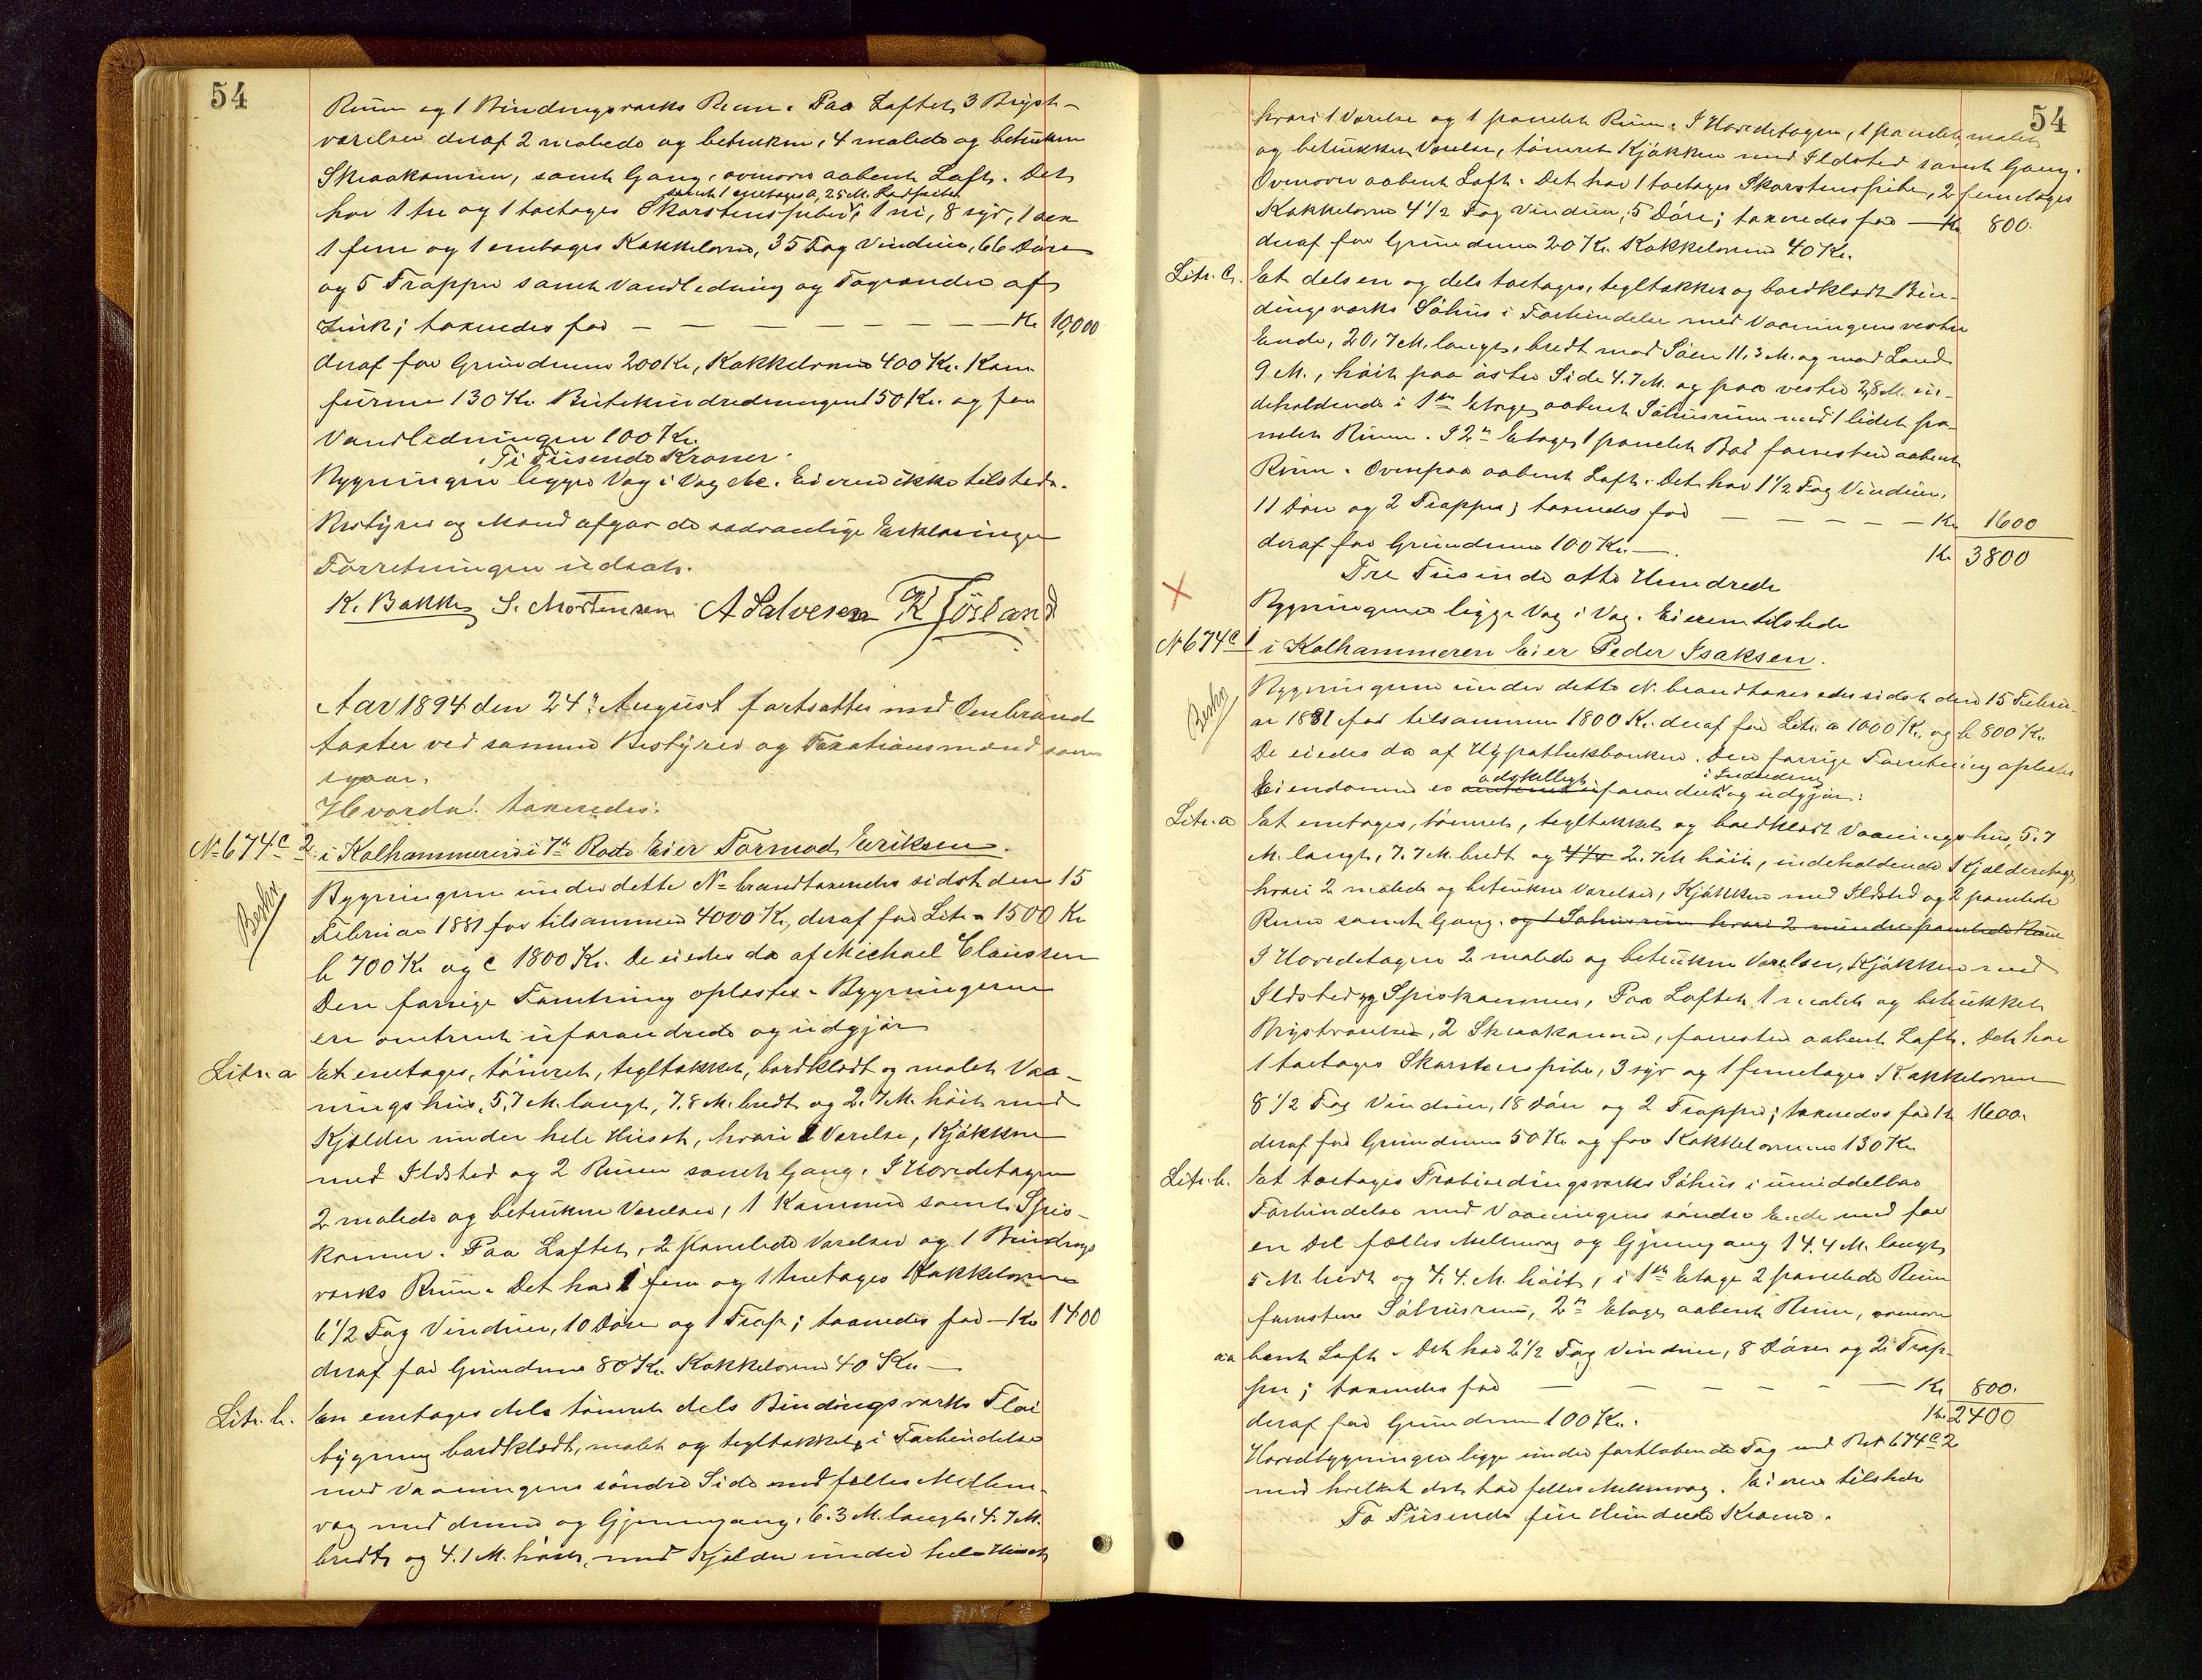 54
Rum og 1 Bindingsværks Rum. Paa Loftet 3 Bryst-
værelser deraf 2 malede og betrukne, 4 malede og betrukne
Skraakamre, samt Gang, ovenover aabent Loft. Det
samt 1 enetages
har 1 tre og 1 toetages Skorstenspiber, 1 ni, 8 syv, 1 sex
1 fem og 1 enetages Kakkelovne, 35 Fag Vinduer, 66 Døre
og 5 Trapper samt Vandledning og Tagrender af
Zink; taxeredes for — — — — — — Kr 10,000
deraf for Grundene 200 Kr, Kakkelovne 400 Kr. Kom
furene 130 Kr. Butikindredningen 150 Kr. og for
Vandledningen 100 Kr.
Ti Tusende Kroner.
Bygningen ligger Væg i Væg. Eieren ikke tilstede.
Bestyrer og Mænd afgav de sædvanlige Erklæringer
Forretningen udsat.
K. Bakke S. Mortensen A Salvesen K Tösland
Aar 1894 den 24de August fortsattes med Ombrand
taxter ved samme Bestyrer og Taxationsmænd som
igaar.
Hvorda! taxeredes:
No 674c 2 i Kalhammeren i 7de Rode Eier Tormod Eriksen.
Beskr
Bygningerne under dette No brandtaxeredes sidst den 15
Februar 1881 for tilsammen 4000 Kr, deraf for Litr a 1500 Kr
b 700 Kr og c 1800 Kr. De eiedes da af Michael Claussen
Den forrige Forretning oplæstes. Bygningerne
ere omtrent uforandrede og udgjør
Litr. a Et enetages, tømret, tegltækket, bordklædt og malet Vaa-
ningshus, 5,7 M. langt, 7.8 M. bredt og 2.7 M. høit med
Kjælder under hele Huset, hvori 1 Værelse, Kjøkken
med Ildsted og 2 Rum samt Gang. I Hovedetagen
2 malede og betrukne Værelser, 1 Kammer samt Spis-
kammer. Paa Loftet, 2 panelede Værelser og 1 Bindings
værks Rum. Det har 1 fem og 1 tretages Kakkelovne
6 1/2 Fag Vinduer, 10 Døre og 1 Trap; taxeredes for — Kr 1400
deraf for Grundene 80 Kr. Kakkelovne 40 Kr. —
Litr. b. En enetages dels tømret dels Bindingsværks Fløi
bygning bordklædt, malet og tegltækket, i Forbindelse
med Vaaningens søndre Side med fælles Mellem-
væg med denne og Gjennemgang, 6.3 M. langt, 4.7 M.
bredt og 4.1 M. høit, med Kjælder under hele Huset
54
hvori 1 Værelse og 1 panelet Rum. I Hovedetagen, 1 panelet, malet
og betrukket Værelse, tømret Kjøkken med Ildsted samt Gang.
Ovenover aabent Loft. Det har 1 toetages Skorstenspibe, 2 femetages
Kakkelovne 4 1/2 Fag Vinduer, 5 Døre; taxeredes for — Kr 800.
deraf for Grundene 20 Kr. Kakkelovne 40 Kr.
Litr. C. Et dels en og dels toetages, tegltækket og bordklædt Bin-
dingsværks Søhus i Forbindelse med Vaaningens vestre
Ende, 20,7 M. langt, bredt mod Søen 11.3 M. og mod Land
9 M., høit paa østre Side 4.7 M. og paa vestre 2,8 M. in-
deholdende i 1ste Etage, aabent Søhusrum med 1 lidet pa-
nelet Rum. I 2den Etage, 1 panelet Bod forresten aabent
Rum. Ovenpaa aabent Loft. Det har 1 1/2 Fag Vinduer,
11 Døre og 2 Trapper; taxeredes for — — — — — Kr 1600
deraf for Grundene 100 Kr. —. Kr 3800
Tre Tusinde otte Hundrede
Bygningerne ligge Væg i Væg. Eieren tilstede
No 674c 1 i Kalhammeren Eier Peder Isaksen.
Beskr
Bygningerne under dette No. brandtaxeredes sidst den 15 Febru-
ar 1881 for tilsammen 1800 Kr. deraf for Litr. a 1000 Kr. og b 800 Kr.
De eiedes da af Hypothekbanken. Den forrige Forretning oplæstes
adskelligt i Indredning
Eiendommen er omtrent uforandret og udgjør:
Litr. a Et enetages, tømret, tegltækket og bordklædt Vaaningshus, 5,7
M. langt, 7.7 M. bredt og 4 1/4 2.7 M høit, indeholdende 1 Kjælderetage
hvori 2 malede og betrukne Værelser, Kjøkken med Ildsted og 2 panelede
Rum samt Gang. og 1 Søhusrum hvori 2 mindre panelede Rum
I Hovedetagen 2 malede og betrukne Værelser, Kjøkken med
Ildsted og Spiskammer, Paa Loftet 1 malet og betrukket
Brystværelse, 2 Skraakamre, forresten aabent Loft. Det har
1 toetages Skorstenspibe, 3 syv og 1 femetages Kakkelovne
8 1/2 Fag Vinduer, 18 Døre og 2 Trapper; taxeredes for Kr 1600.
deraf for Grundene 50 Kr og for Kakkelovnene 130 Kr
Litr. b. Et toetages Træbindingsværks Søhus i umiddelbar
Forbindelse med Vaaningens søndre Ende med for
en Del fælles Mellemvæg og Gjennemgang 14.4 M. langt
5 M. bredt og 7.4. M. høit, i 1ste Etage 2 panelede Rum
forresten Søhusrum, 2den Etage aabent Rum, ovenover
aa bent Loft. Det har 2 1/2 Fag Vinduer, 8 Døre og 2 Trap-
per; taxeredes for — — — — — — Kr 800.
deraf for Grundene 100 Kr. Kr. 2400
Hovedbygningen ligge under fortløbende Tag med No 674c 2
med hvilket det har fælles Mellemvæg. Eieren tilstede
To Tusende fire Hundrede Kroner.